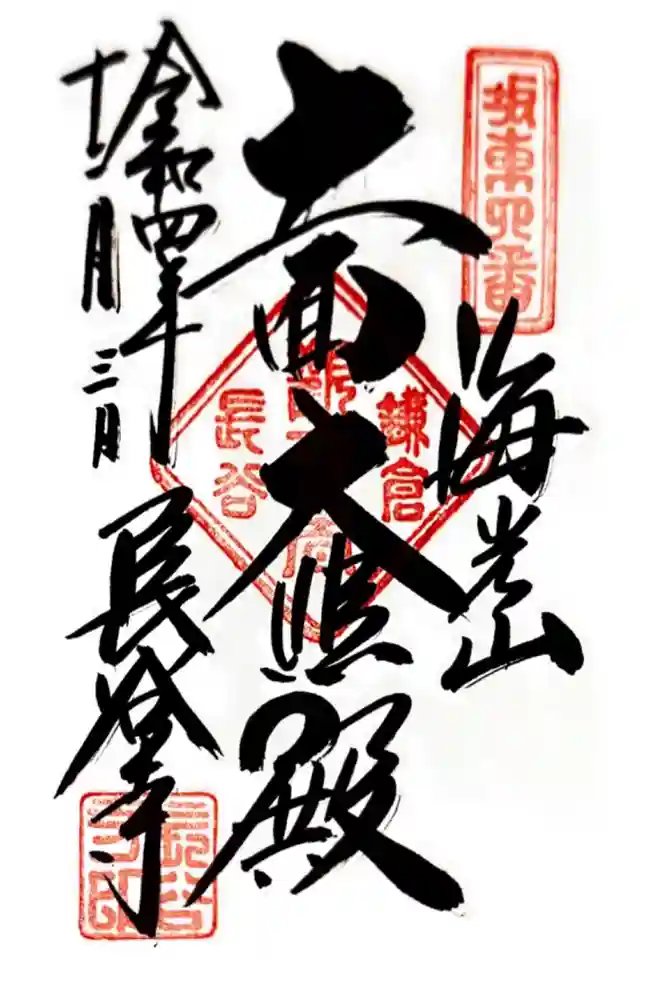 坂東四番
海光山
十一面大悲殿
鎌倉
長谷
令和四年
十二月三日
長谷寺
長谷寺印